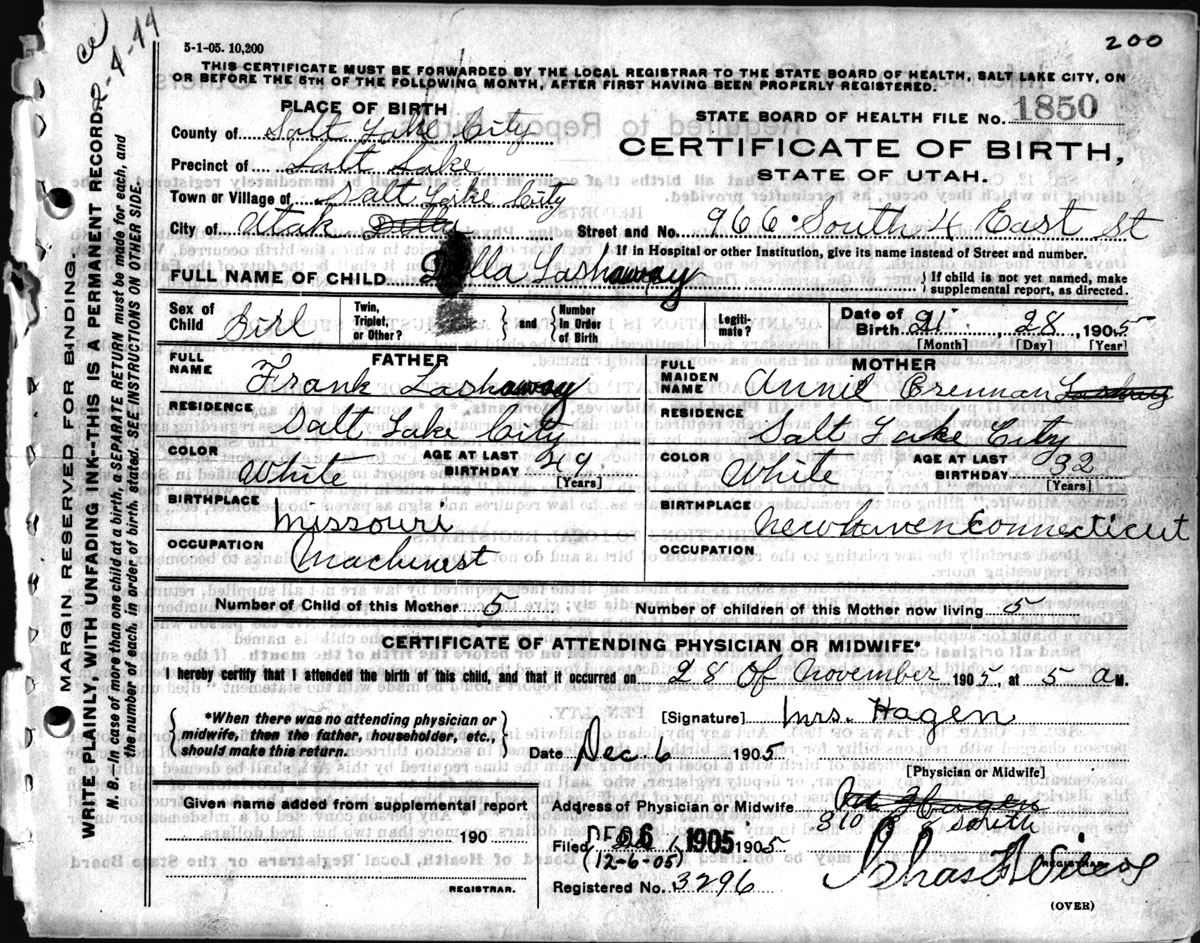 200
5-1-05. 10,200
THIS CERTIFICATE MUST BE FORWARDED BY THE LOCAL REGISTRAR TO THE STATE BOARD OF HEALTH, SALT LAKE CITY, ON
OR BEFORE THE 5TH OF THE FOLLOWING MONTH, AFTER FIRST HAVING BEEN PROPERLY REGISTERED.
PLACE OF BIRTH
STATE BOARD OF HEALTH FILE No. 1850
County of Salt Lake City
CERTIFICATE OF BIRTH,
Precinct of Salt Lake
STATE OF UTAH.
Town or Village of Salt Lake City
City of Utah Street and No. 966 South 4 East St
If in Hospital or other Institution, give its name instead of Street and number.
FULL NAME OF CHILD Della Lashaway
If child is not yet named, make
supplemental report, as directed.
Sex of Child Girl
Twin, Triplet, or Other? and Number In Order of Birth
Legiti- mate?
Date of Birth 28, 1905
[Month] [Day] [Year]
FATHER
FULL NAME Frank Lashaway
RESIDENCE
Salt Lake City
COLOR White AGE AT LAST BIRTHDAY 29
[Years]
BIRTHPLACE
Missouri
OCCUPATION
Machinest
MOTHER
FULL MAIDEN NAME Annie
RESIDENCE
Salt Lake City
COLOR White AGE AT LAST BIRTHDAY 32
[Years]
BIRTHPLACE
New haven Connecticut
OCCUPATION
Number of Child of this Mother 5 Number of children of this Mother now living 5
CERTIFICATE OF ATTENDING PHYSICIAN OR MIDWIFE*
I hereby certify that I attended the birth of this child, and that it occurred on 28 Of November 1905, at 5 a M.
*When there was no attending physician or
midwife, then the father, householder, etc.,
should make this return.
[Signature] Mrs. Hagen
Date Dec 6 1905
[Physician or Midwife]
Given name added from supplemental report
190
REGISTRAR.
Address of Physician or Midwife
310 South
Filed DEC 6 1905 1905
(12-6-05)
REGISTRAR.
Registered No. 3296
(OVER)
MARGIN RESERVED FOR BINDING.
WRITE PLAINLY, WITH UNFADING INK--THIS IS A PERMANENT RECORD.
N. B. In case of more than one child at a birth, a SEPARATE RETURN must be made for each, and
the number of each, in order of birth, stated. SEE INSTRUCTIONS ON OTHER SIDE.